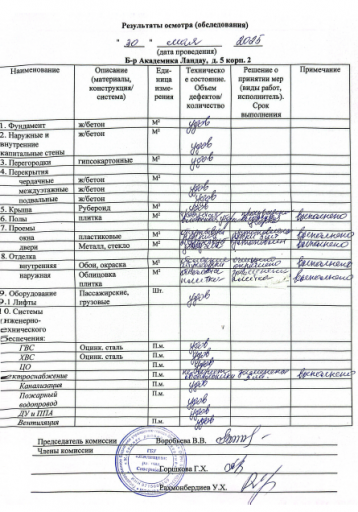 Результаты осмотра (обследования)
" 30 " мая 2025
(дата проведения)
Б-р Академика Ландау, д. 5 корп. 2
Наименование Описание (материалы, конструкция/ система) Еди- ница изме- рения Техническо е состояние. Объем дефектов/ количество Решение о принятии мер (виды работ, исполнитель). Срок выполнения Примечание
1. Фундамент ж/бетон М³ удов
2. Наружные и внутренние капитальные стены ж/бетон М³ удов
3. Перегородки гипсокартонные М² удов
4. Перекрытия
чердачные ж/бетон М² удов
междуэтажные ж/бетон М² удов
подвальные ж/бетон М² удов
5. Крыша Рубероид М² удов
6. Полы плитка М² выполнено
7. Проемы
окна пластиковые М² выполнено
двери Металл, стекло М² выполнено
8. Отделка
внутренняя Обои, окраска М² выполнено
наружная Облицовка плитка М² выполнено
9. Оборудование Пассажирские, грузовые Шт. удов
9.1 Лифты
10. Системы
инженерно-
технического
обеспечения:
ГВС Оцинк. сталь П.м. удов
ХВС Оцинк. сталь П.м. удов
ЦО П.м. удов
электроснабжение П.м. выполнено
Канализация П.м. удов
Пожарный водопровод П.м. удов
ДУ и ППА П.м. удов
Вентиляция П.м. удов
Председатель комиссии Воробьева В.В.
Члены комиссии
Горшкова Г.Х.
Рахмонбердиев У.Х.